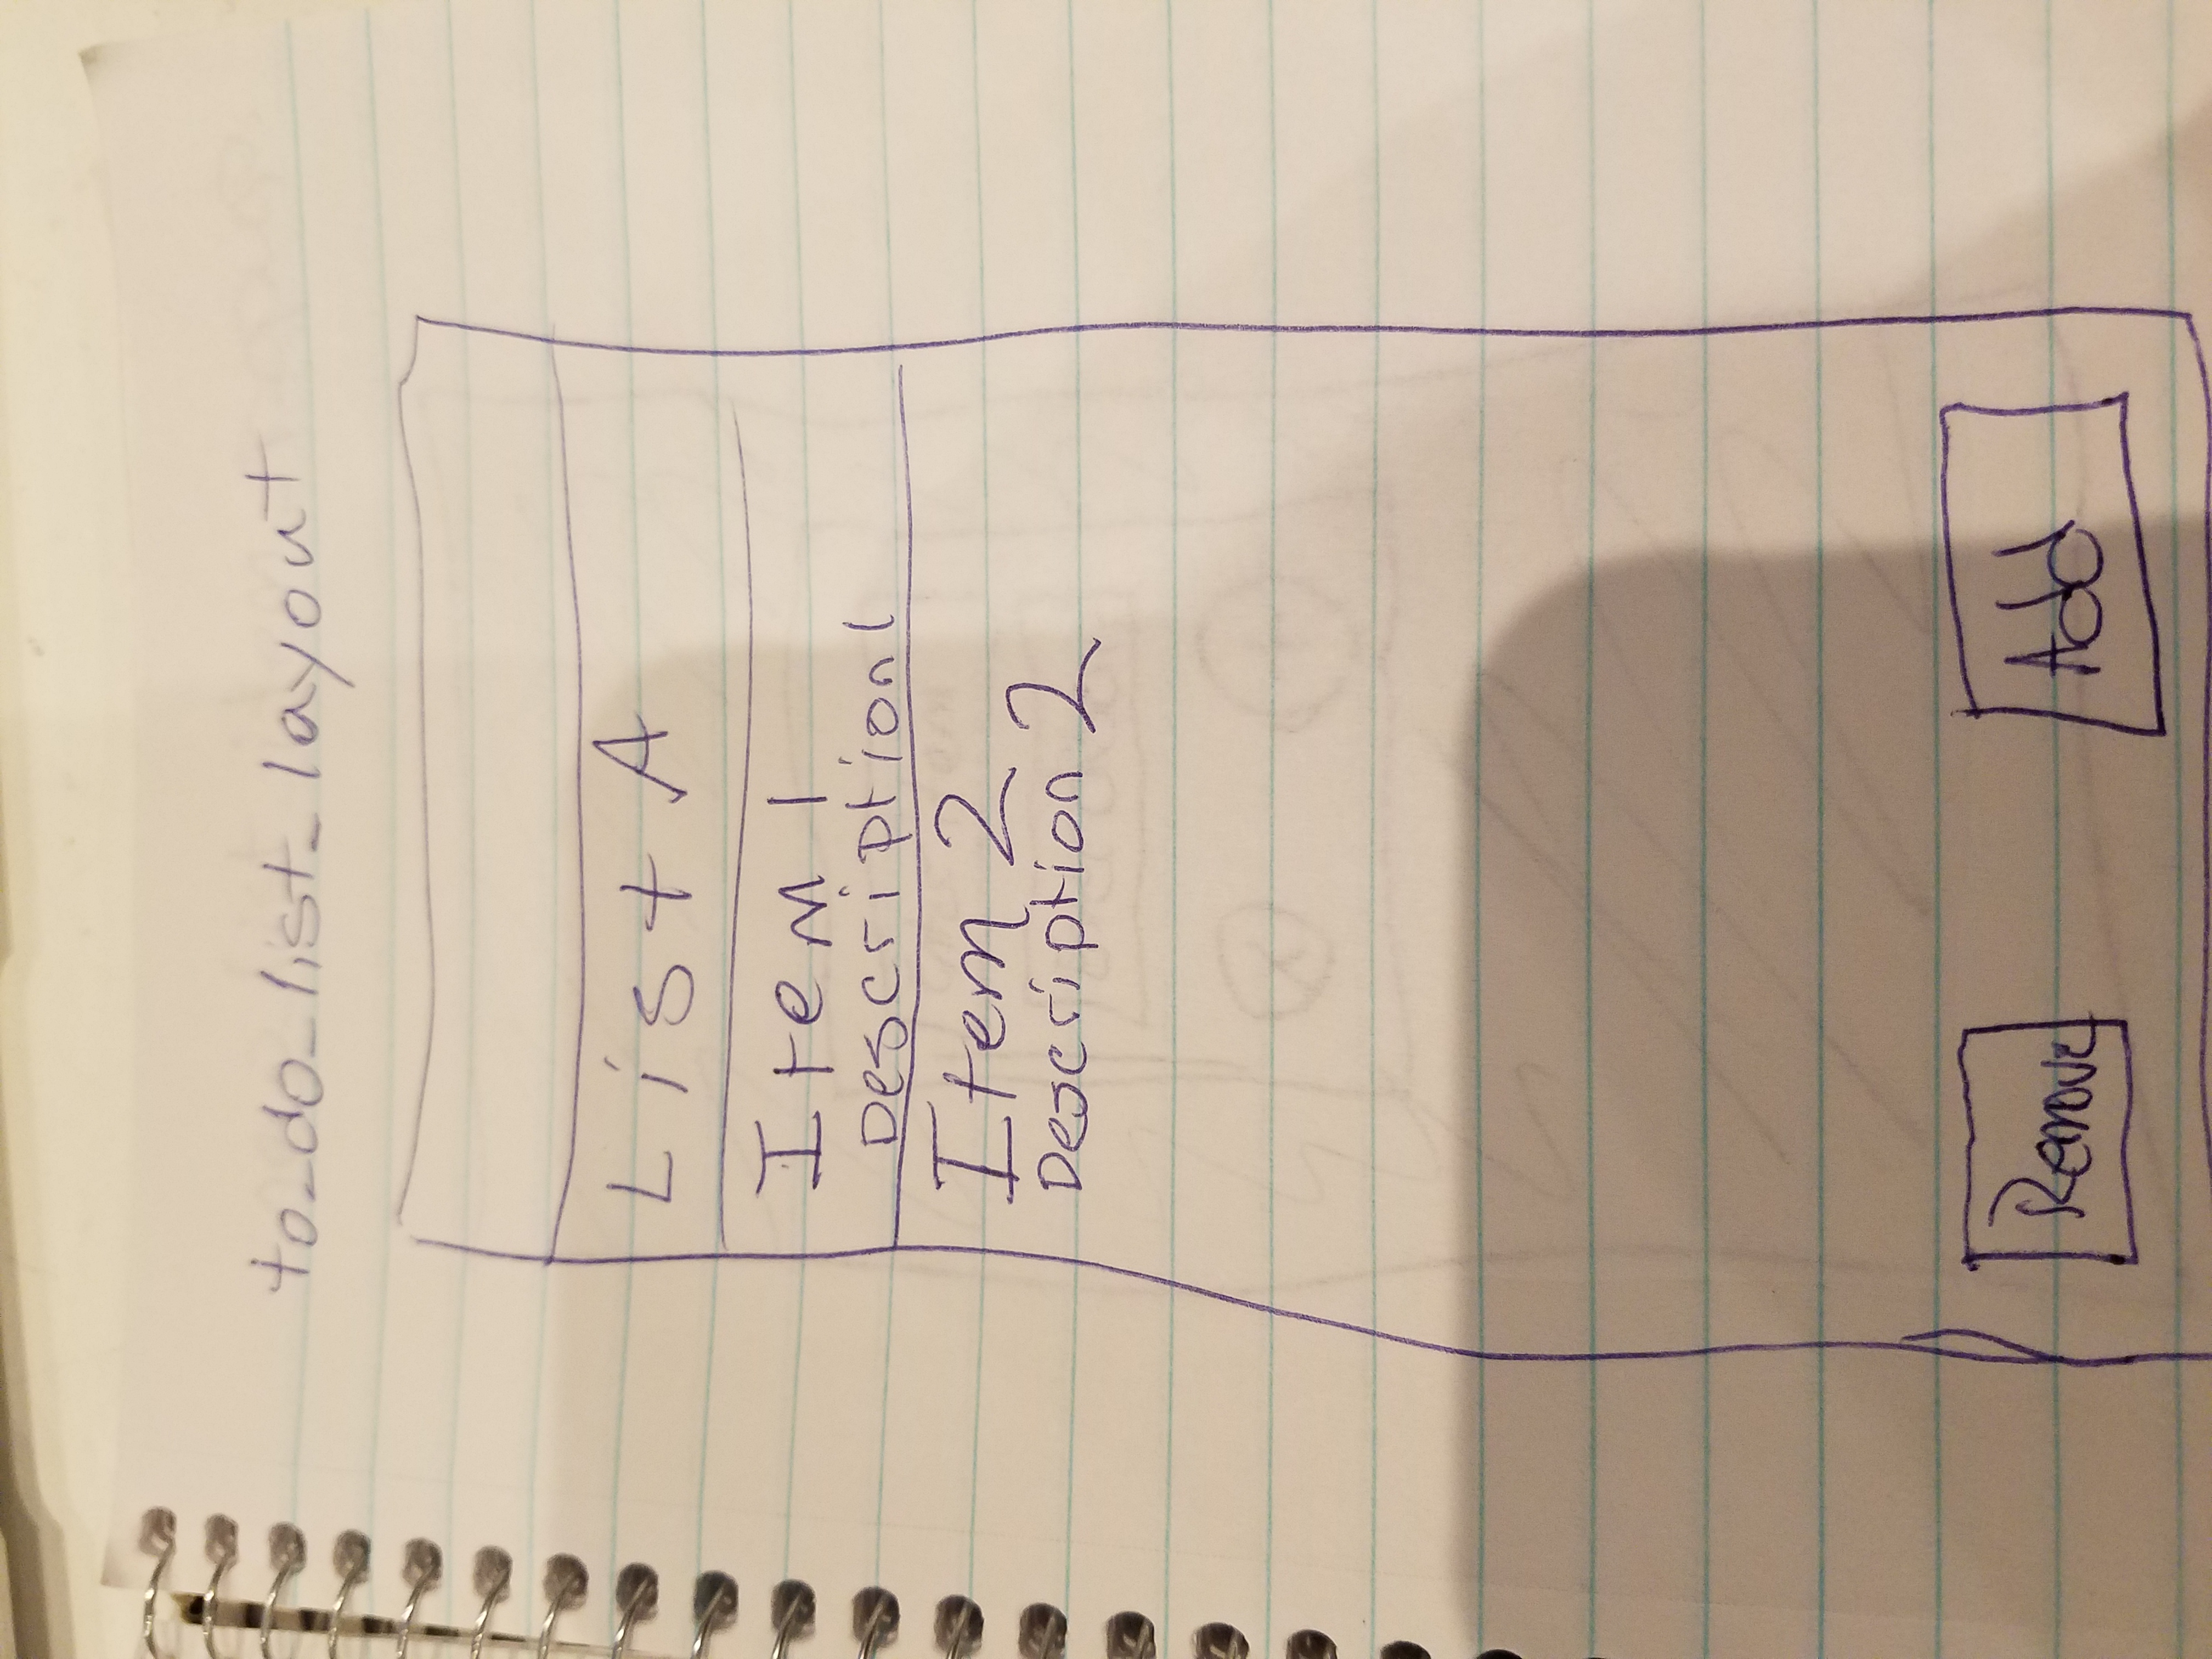 to_do_list_layout
List A
Item 1
Description 1
Item 2
Description 2
Remove
Add